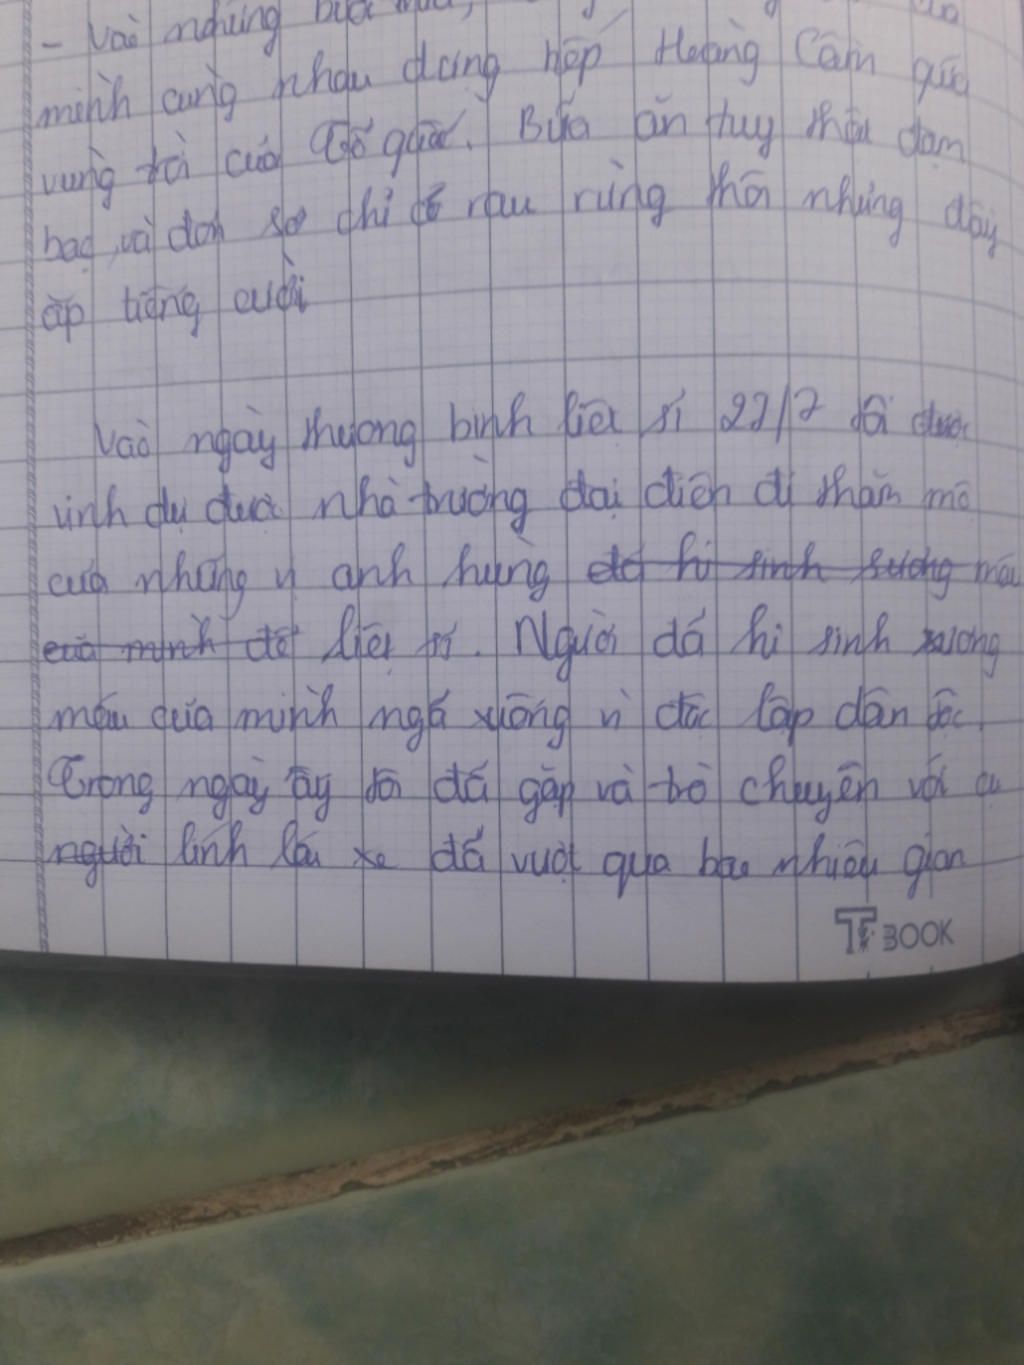 - Vào những buổi
mình cùng nhau dựng bếp Hoàng Cầm giữa
vùng trời của Tổ quốc. Bữa ăn tuy thôi đạm
bạc, và đơn sơ chỉ có rau rừng thôi nhưng đầy
ắp tiếng cười
Vào ngày thương binh liệt sĩ 27/7 tôi được
vinh dự được nhà trường đại diện đi thăm mộ
của những vị anh hùng đã hi sinh xương máu
của mình để liệt sĩ. Người đã hi sinh xương
máu của mình ngã xuống vì độc lập dân tộc.
Trong ngày ấy tôi đã gặp và trò chuyện với cu
người lính lái xe đã vượt qua bao nhiêu gian
TF BOOK